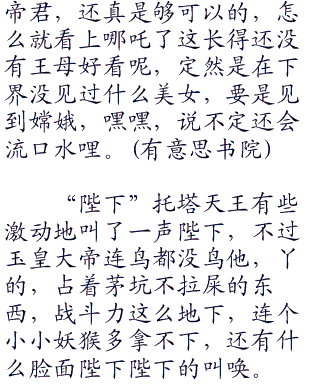 帝君，还真是够可以的，怎
么就看上哪吒了这长得还没
有王母好看呢，定然是在下
界没见过什么美女，要是见
到嫦娥，嘿嘿，说不定还会
流口水哩。(有意思书院)
“陛下”托塔天王有些
激动地叫了一声陛下，不过
玉皇大帝连鸟都没鸟他，丫
的，占着茅坑不拉屎的东
西，战斗力这么地下，连个
小小妖猴多拿不下，还有什
么脸面陛下陛下的叫唤。